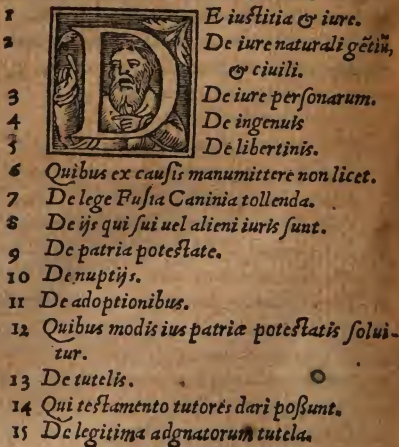 1 DE iustitia & iure.
2 De iure naturali gētiū,
& ciuili.
3 De iure personarum.
4 De ingenuis
5 De libertinis.
6 Quibus ex causis manumittere non licet.
7 De lege Fusia Caninia tollenda.
8 De ijs qui sui uel alieni iuris sunt.
9 De patria potestate.
10 De nuptijs.
11 De adoptionibus.
12 Quibus modis ius patriæ potestatis solui-
tur.
13 De tutelis.
14 Qui testamento tutores dari possunt.
15 De legitima adgnatorum tutela.